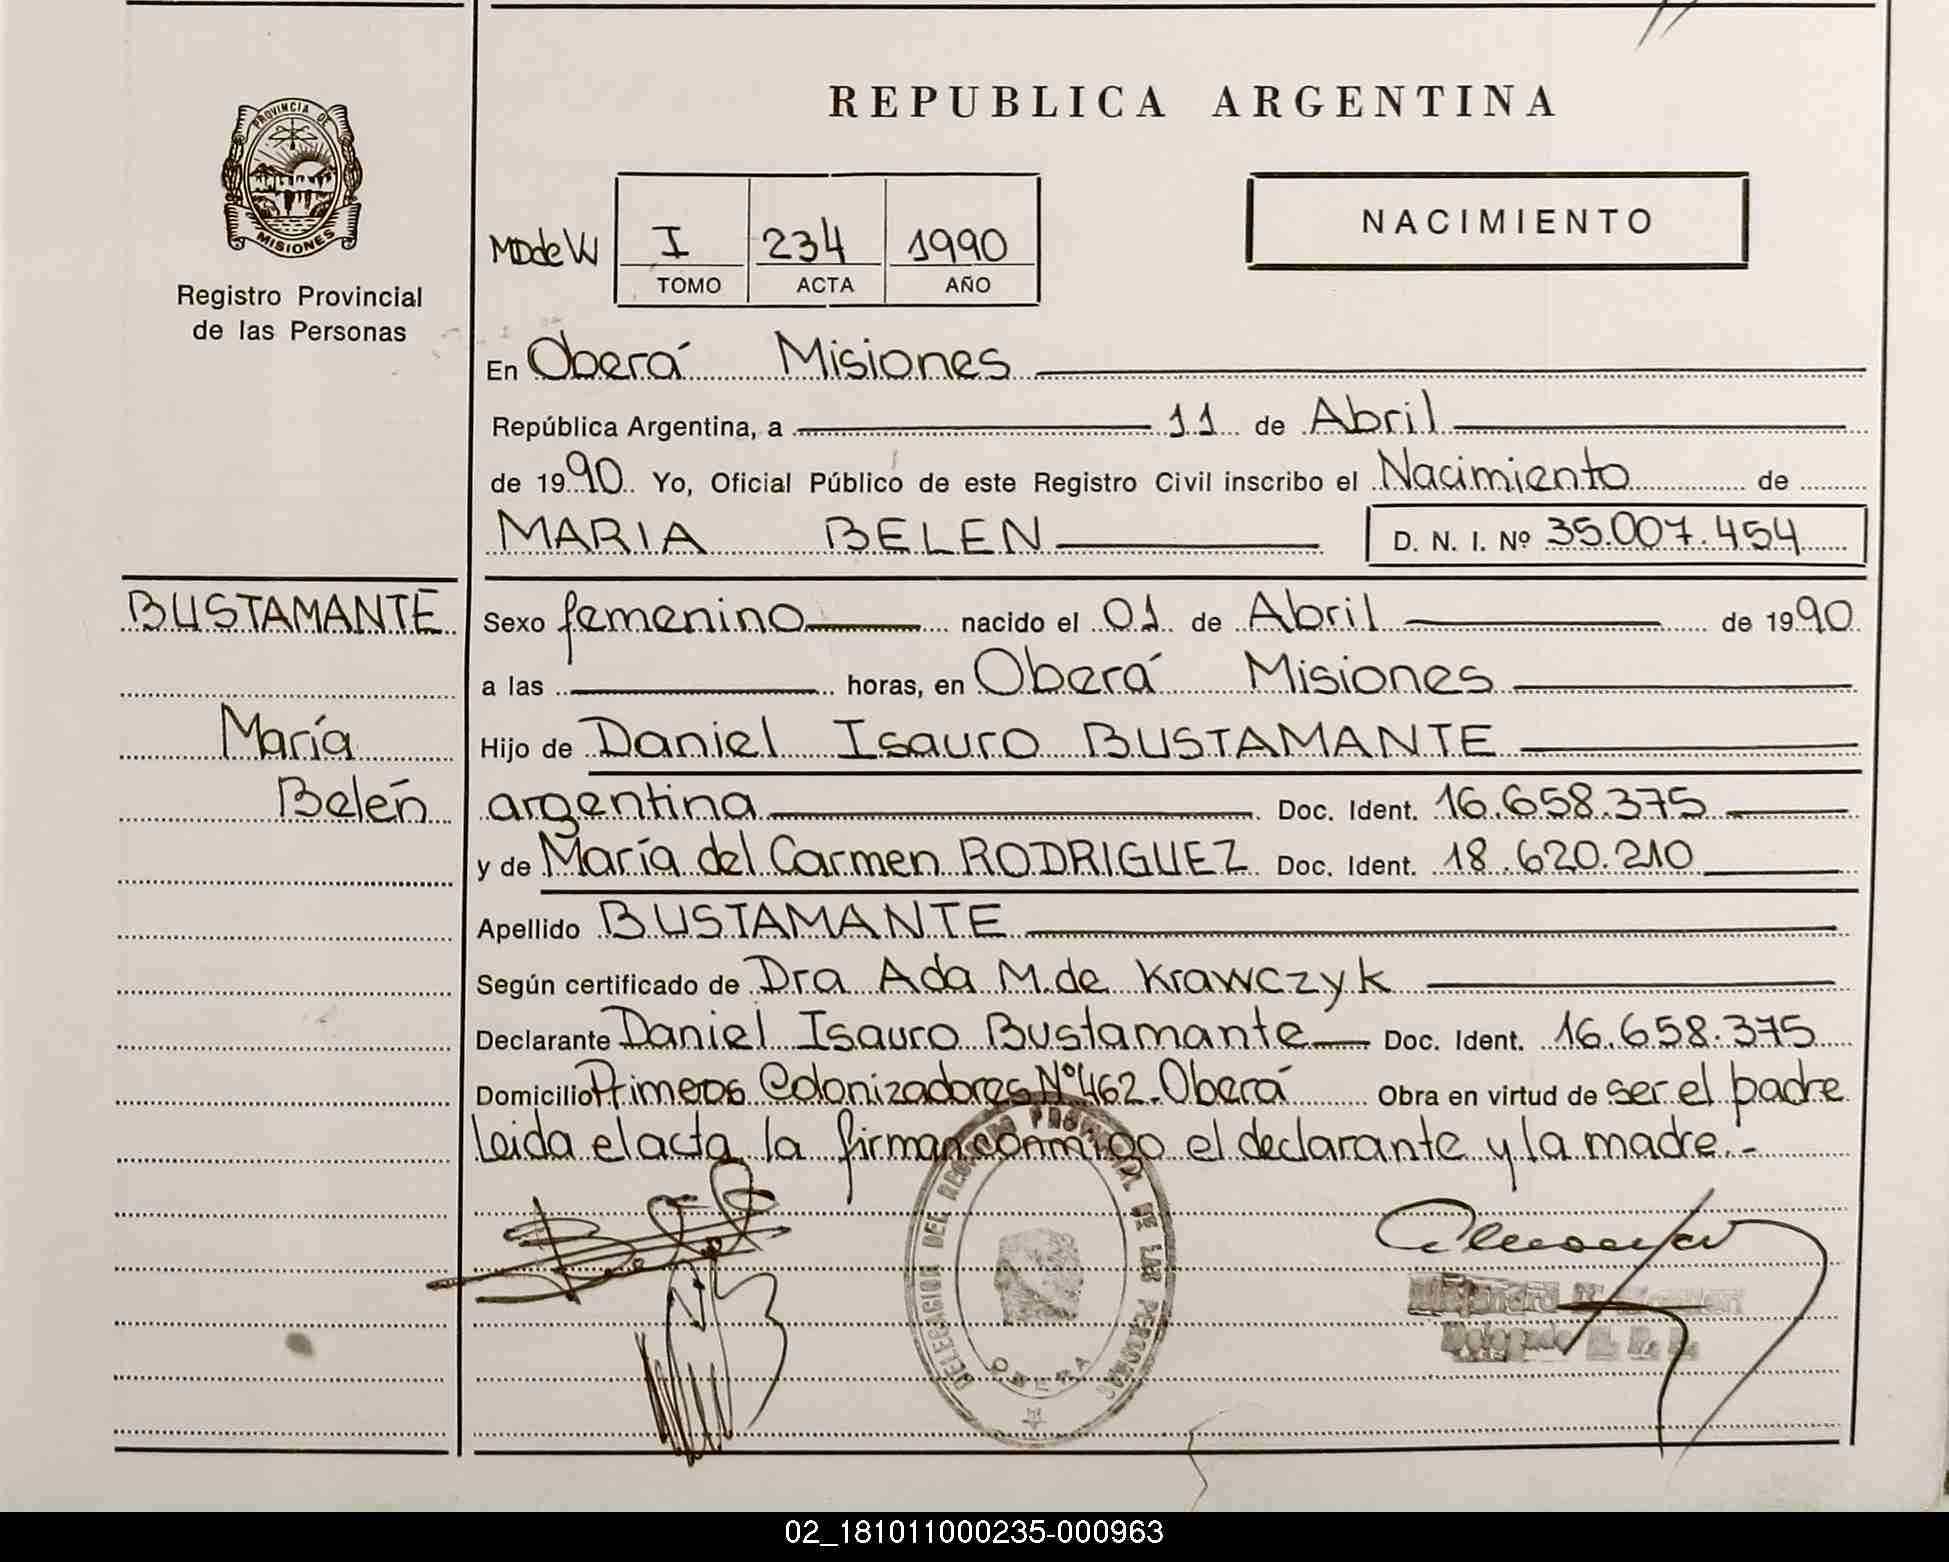 REPUBLICA ARGENTINA
PROVINCIA DE
MISIONES
Registro Provincial
de las Personas
NACIMIENTO
I 234 1990
TOMO ACTA AÑO
En Oberá Misiones
República Argentina, a 11 de Abril
de 1990 Yo, Oficial Público de este Registro Civil inscribo el Nacimiento de
MARIA BELEN D. N. I. Nº 35.007.454
BUSTAMANTE
María
Belén
Sexo femenino nacido el 01 de Abril de 1990
a las horas, en Oberá Misiones
Hijo de Daniel Isauro BUSTAMANTE
argentina Doc. Ident. 16.658.375
y de María del Carmen RODRIGUEZ Doc. Ident. 18.620.210
Apellido BUSTAMANTE
Según certificado de Dra Ada M. de Krawczyk
Declarante Daniel Isauro Bustamante Doc. Ident. 16.658.375
Domicilio Primeros Colonizadores Nº 462. Oberá Obra en virtud de ser el padre
Leida el acta la firman conmigo el declarante y la madre.-
DELEGACION DEL REGISTRO PROVINCIAL DE LAS PERSONAS
OBERA
Delegado R. P. P.
02_181011000235-000963